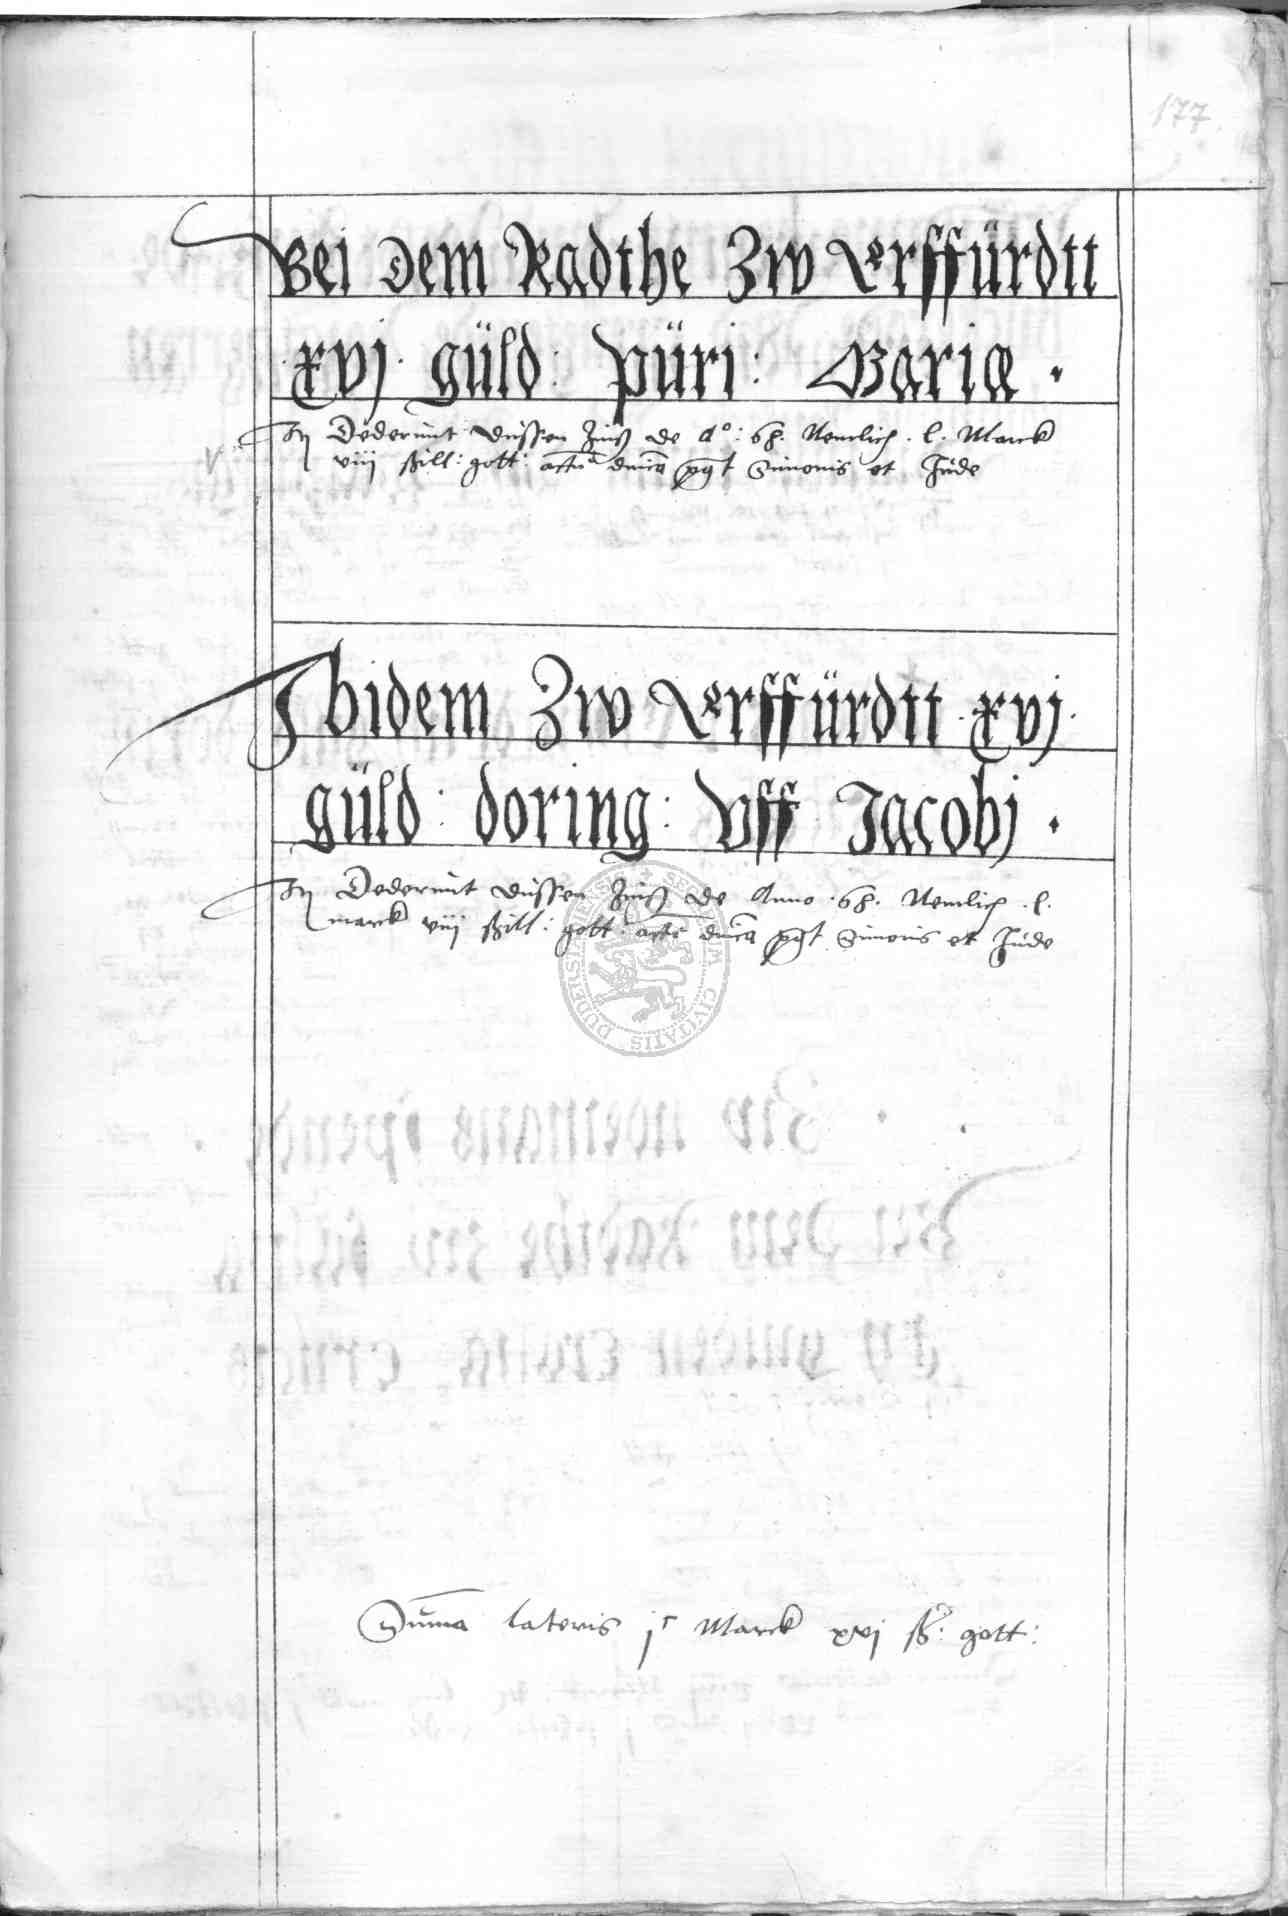 177.
Bei Dem Radthe Zw Erffürdtt
·xvj· güld: püri: Marie ·
Dederunt dussen Zinß de Aº: 68. Nemlich . l. Marck
viij ßill: gott: actu dnica post Simonis et Jude
Ibidem Zw Erffürdtt ·xvj·
güld: doring: Vff Jacobj ·
Dederunt dussen Zinß de Anno .68. Nemlich .l.
marck viij ßill: gott: actu dnica post Simonis et Jude
SECRETUM CIVITATIS DUDERSTADENSIS
Suma lateris jc Marck xvj ß: gott: